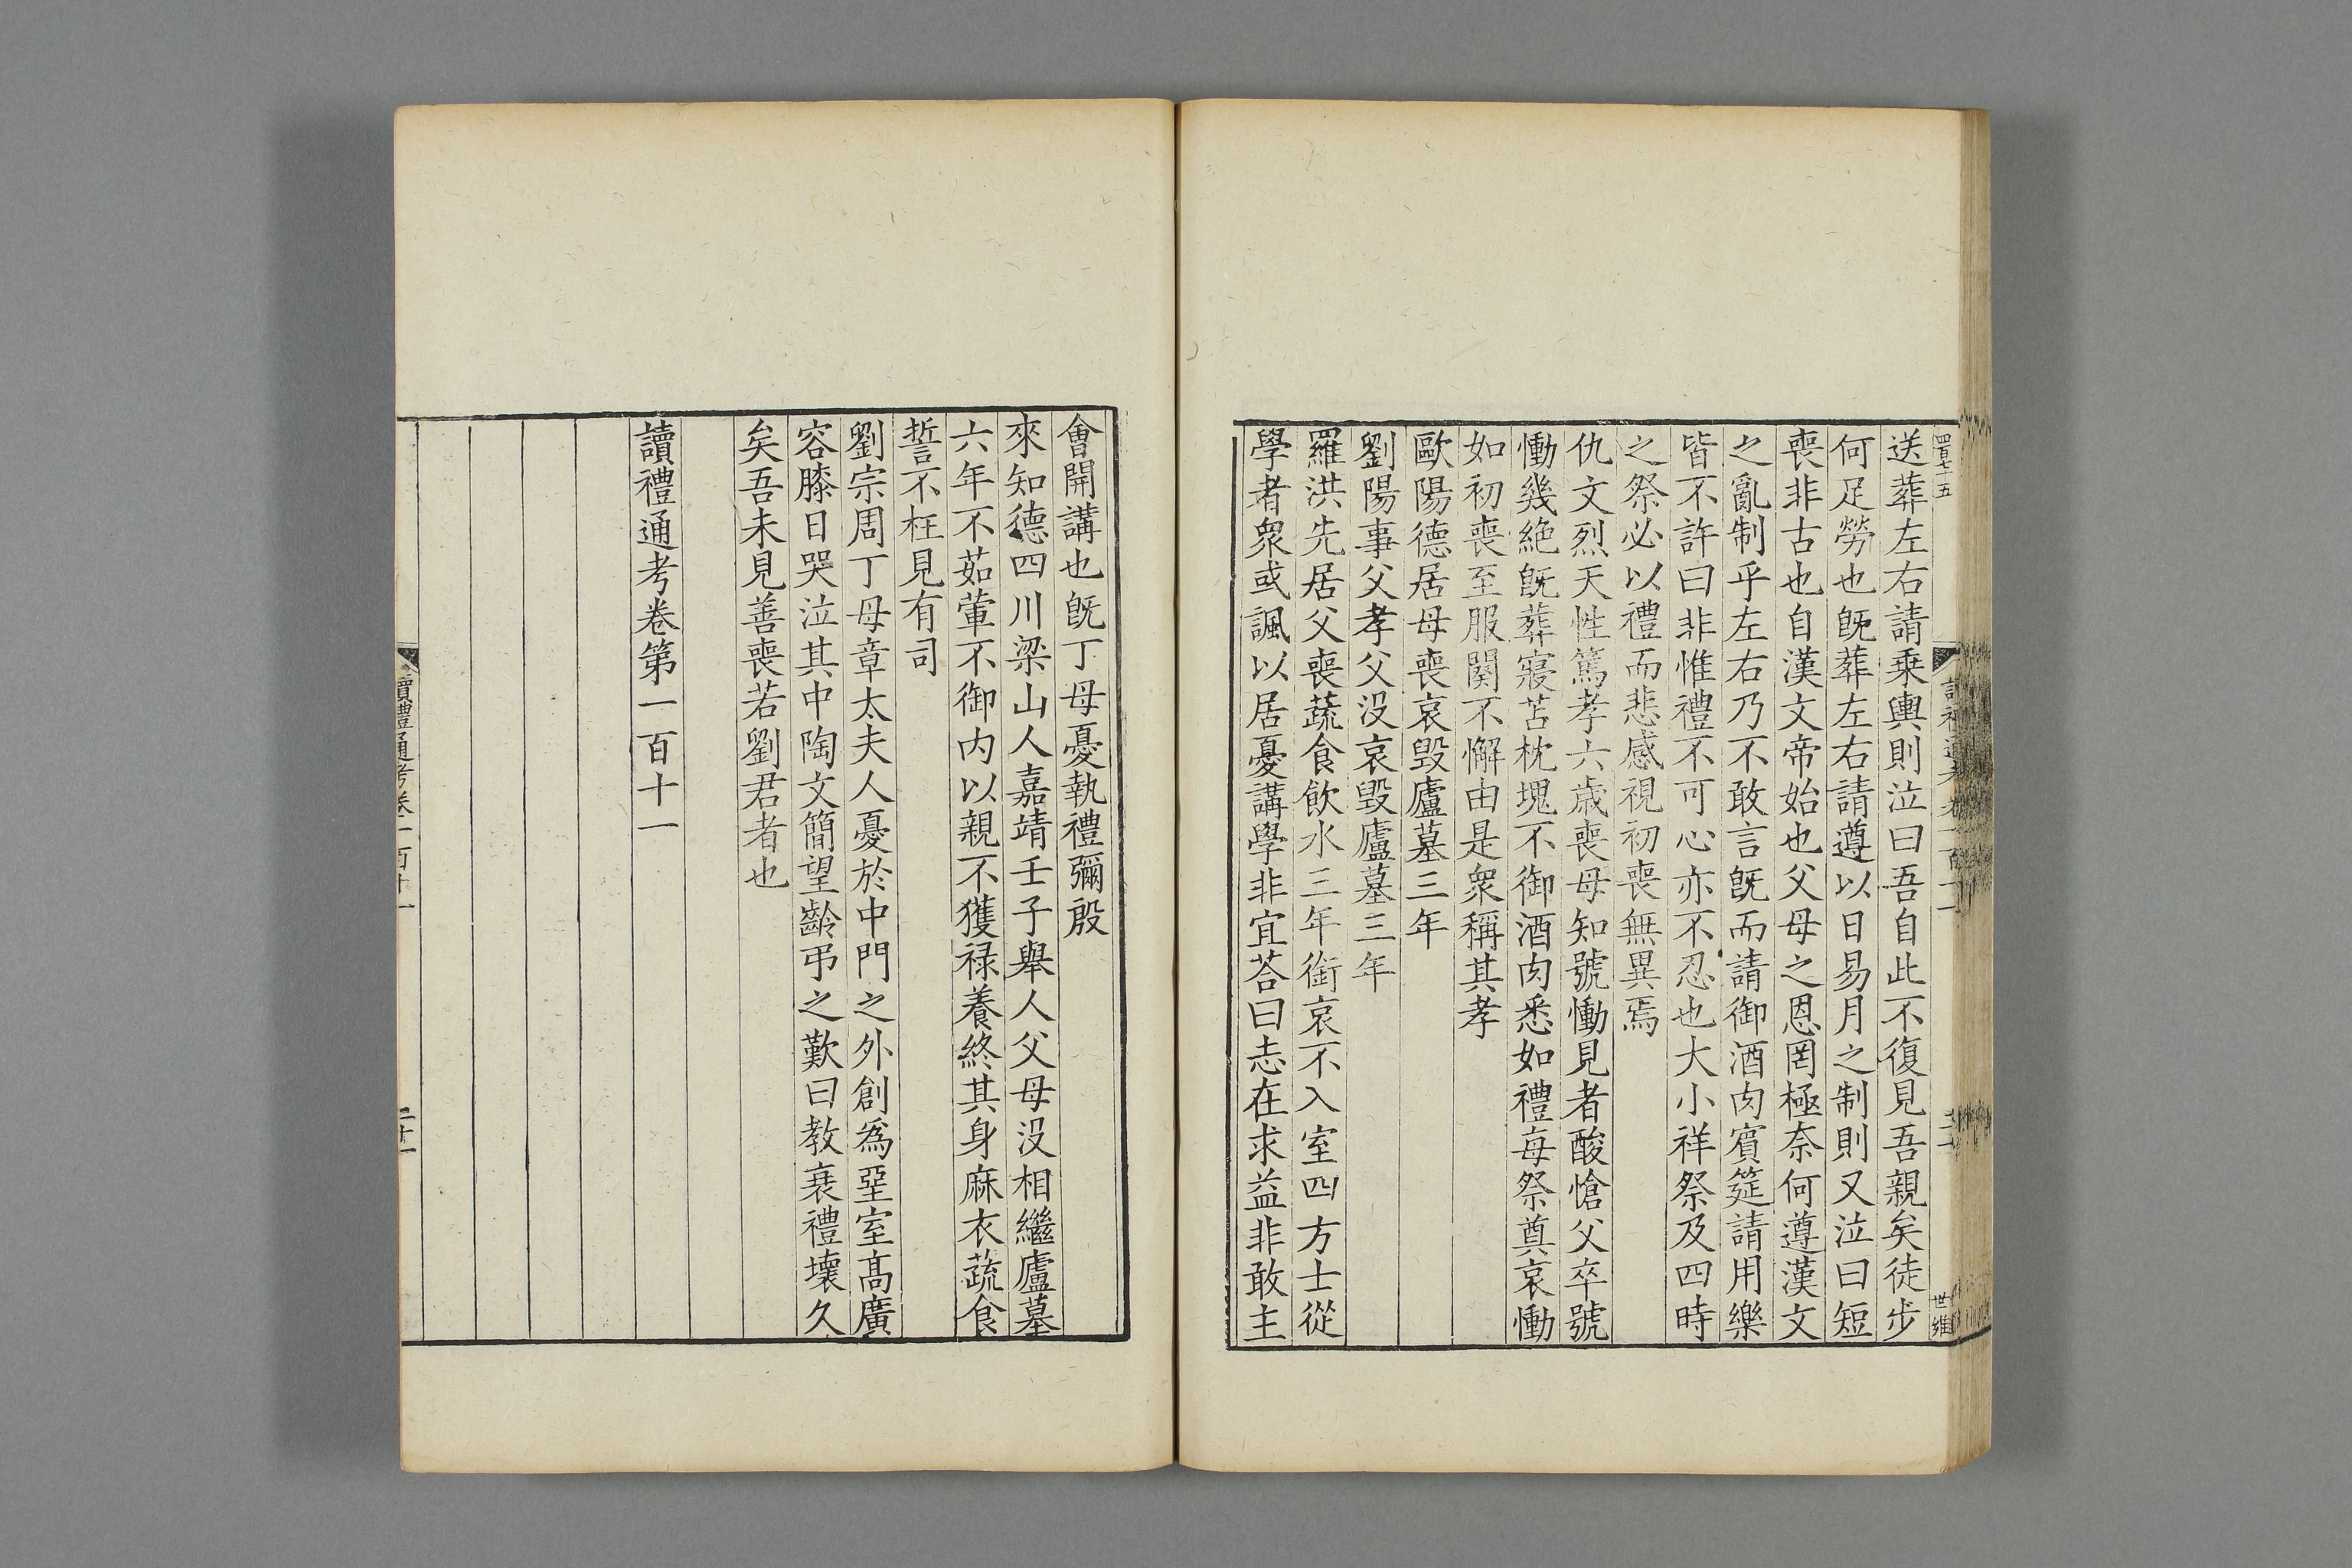 四百七十五
送葬左右請乗輿則泣曰吾自此不復見吾親矣徒步
何足勞也旣葬左右請遵以日易月之制則又泣曰短
喪非古也自漢文帝始也父母之恩罔極奈何遵漢文
之亂制乎左右乃不敢言旣而請御酒肉賓筵請用樂
皆不許曰非惟禮不可心亦不忍也大小祥祭及四時
之祭必以禮而悲感視初喪無異焉
仇文烈天性篤孝六歲喪母知號慟見者酸愴父卒號
慟幾絶旣葬寢苫枕塊不御酒肉悉如禮每祭奠哀慟
如初喪至服闋不懈由是衆稱其孝
歐陽德居母喪哀毀廬墓三年
劉陽事父孝父没哀毀廬墓三年
羅洪先居父喪蔬食飲水三年銜哀不入室四方士從
學者衆或諷以居憂講學非宜荅曰志在求益非敢主
會開講也旣丁母憂執禮彌殷
來知德四川梁山人嘉靖壬子舉人父母没相繼廬墓
六年不茹葷不御内以親不獲禄養終其身麻衣蔬食
誓不枉見有司
劉宗周丁母章太夫人憂於中門之外創爲堊室高廣
容膝日哭泣其中陶文簡望齡弔之歎曰教衰禮壞久
矣吾未見善喪若劉君者也
讀禮通考卷第一百十一
讀禮通考卷一百十一
二十一